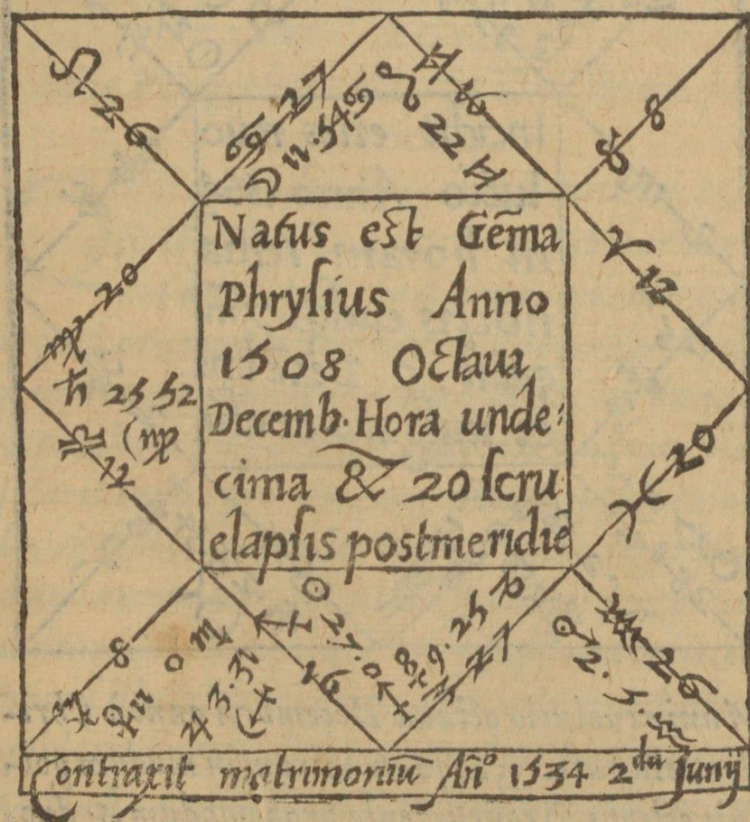 ♌ 26
♋ 27
☽ 11.54 ♋
♊ 16
☊ 22 ♊
♉ 8
♍ 20
♄ 25 52
(♍
♎
♈ 12
♓ 20
Natus est Gem̃a
Phrysius Anno
1508 Octaua
Decemb. Hora unde:
cima & 20 scru
elapsis postmeridiē
♏ 8
♀ 11 0 ♏
♃ 3.31
(♐
♐ 16
☉ 27.0 ♐
☿ 9.25 ♑
♑ 27
♂ 2.5. ♒
♒ 26
Contraxit matrimoniū An̄o 1534 2 Junij